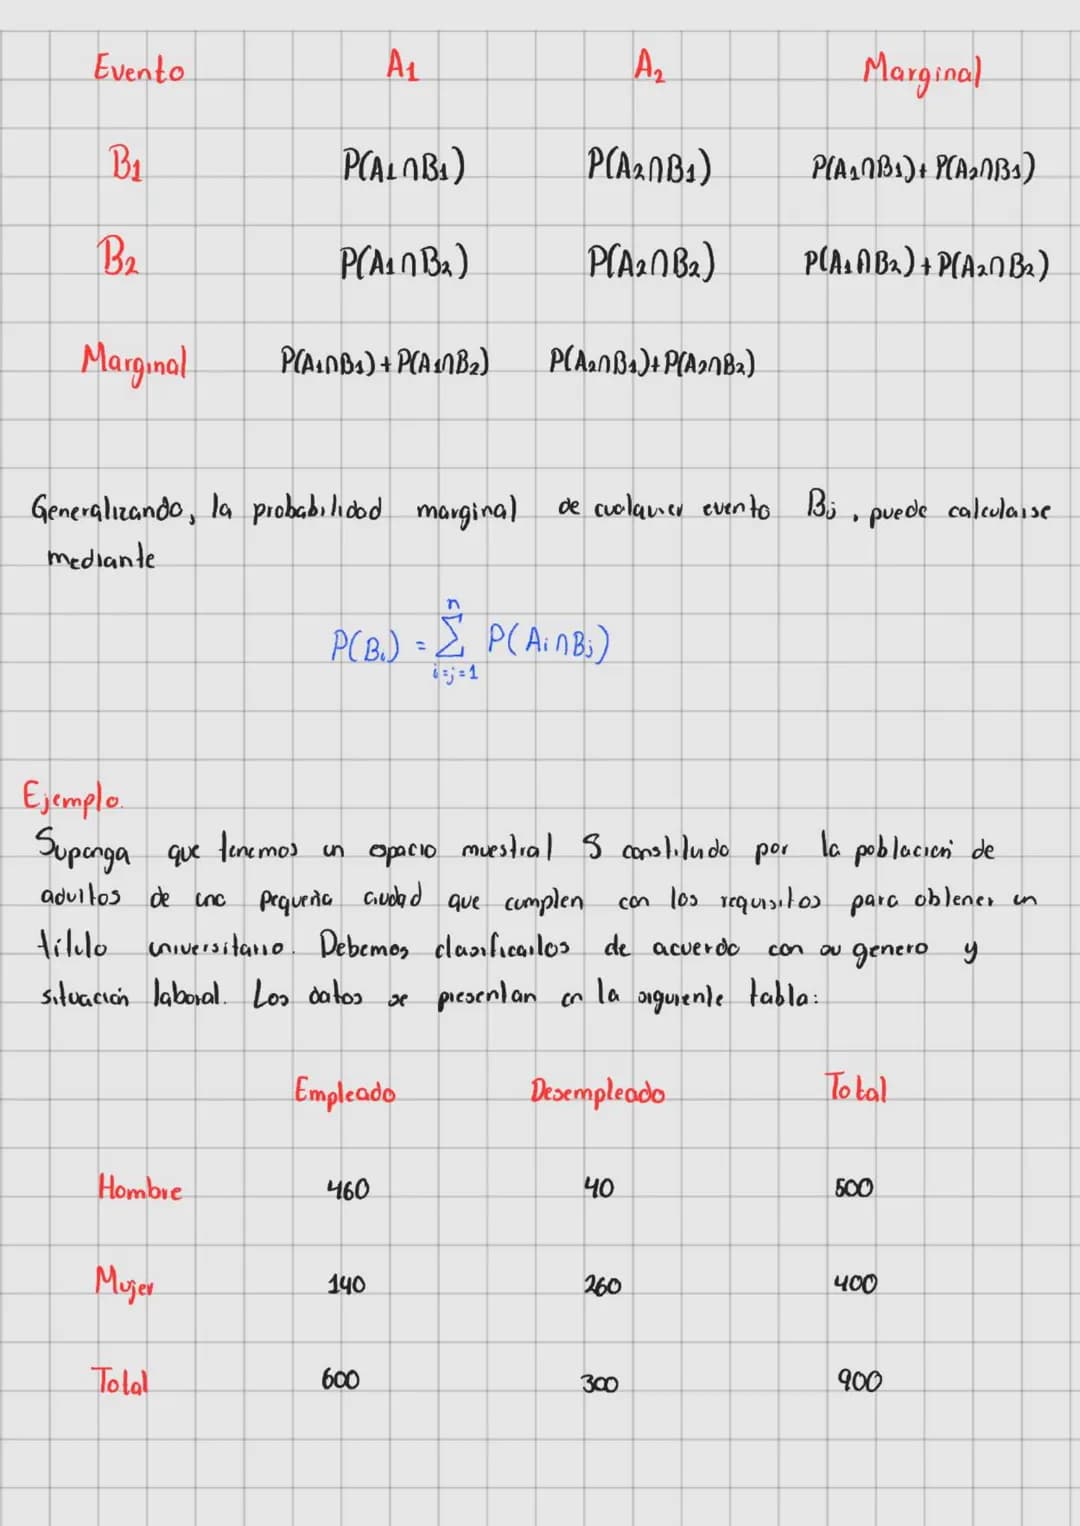 Evento A1 A2 Marginal
B1 P(A1∩B1) P(A2∩B1) P(A1∩B1)+P(A2∩B1)
B2 P(A1∩B2) P(A2∩B2) P(A1∩B2)+P(A2∩B2)
Marginal P(A1∩B1)+P(A1∩B2) P(A2∩B1)+P(A2∩B2)
Generalizando, la probabilidad marginal de cualquier evento Bj, puede calcularse
mediante
P(Bi) = n Σ i=j=1 P(Ai∩Bj)
Ejemplo.
Suponga que tenemos un espacio muestral S constituido por la población de
adultos de una pequeña ciudad que cumplen con los requisitos para obtener un
título universitario. Debemos clasificarlos de acuerdo con su genero y
situación laboral. Los datos se presentan en la siguiente tabla:
Empleado Desempleado Total
Hombre 460 40 500
Mujer 140 260 400
Total 600 300 900